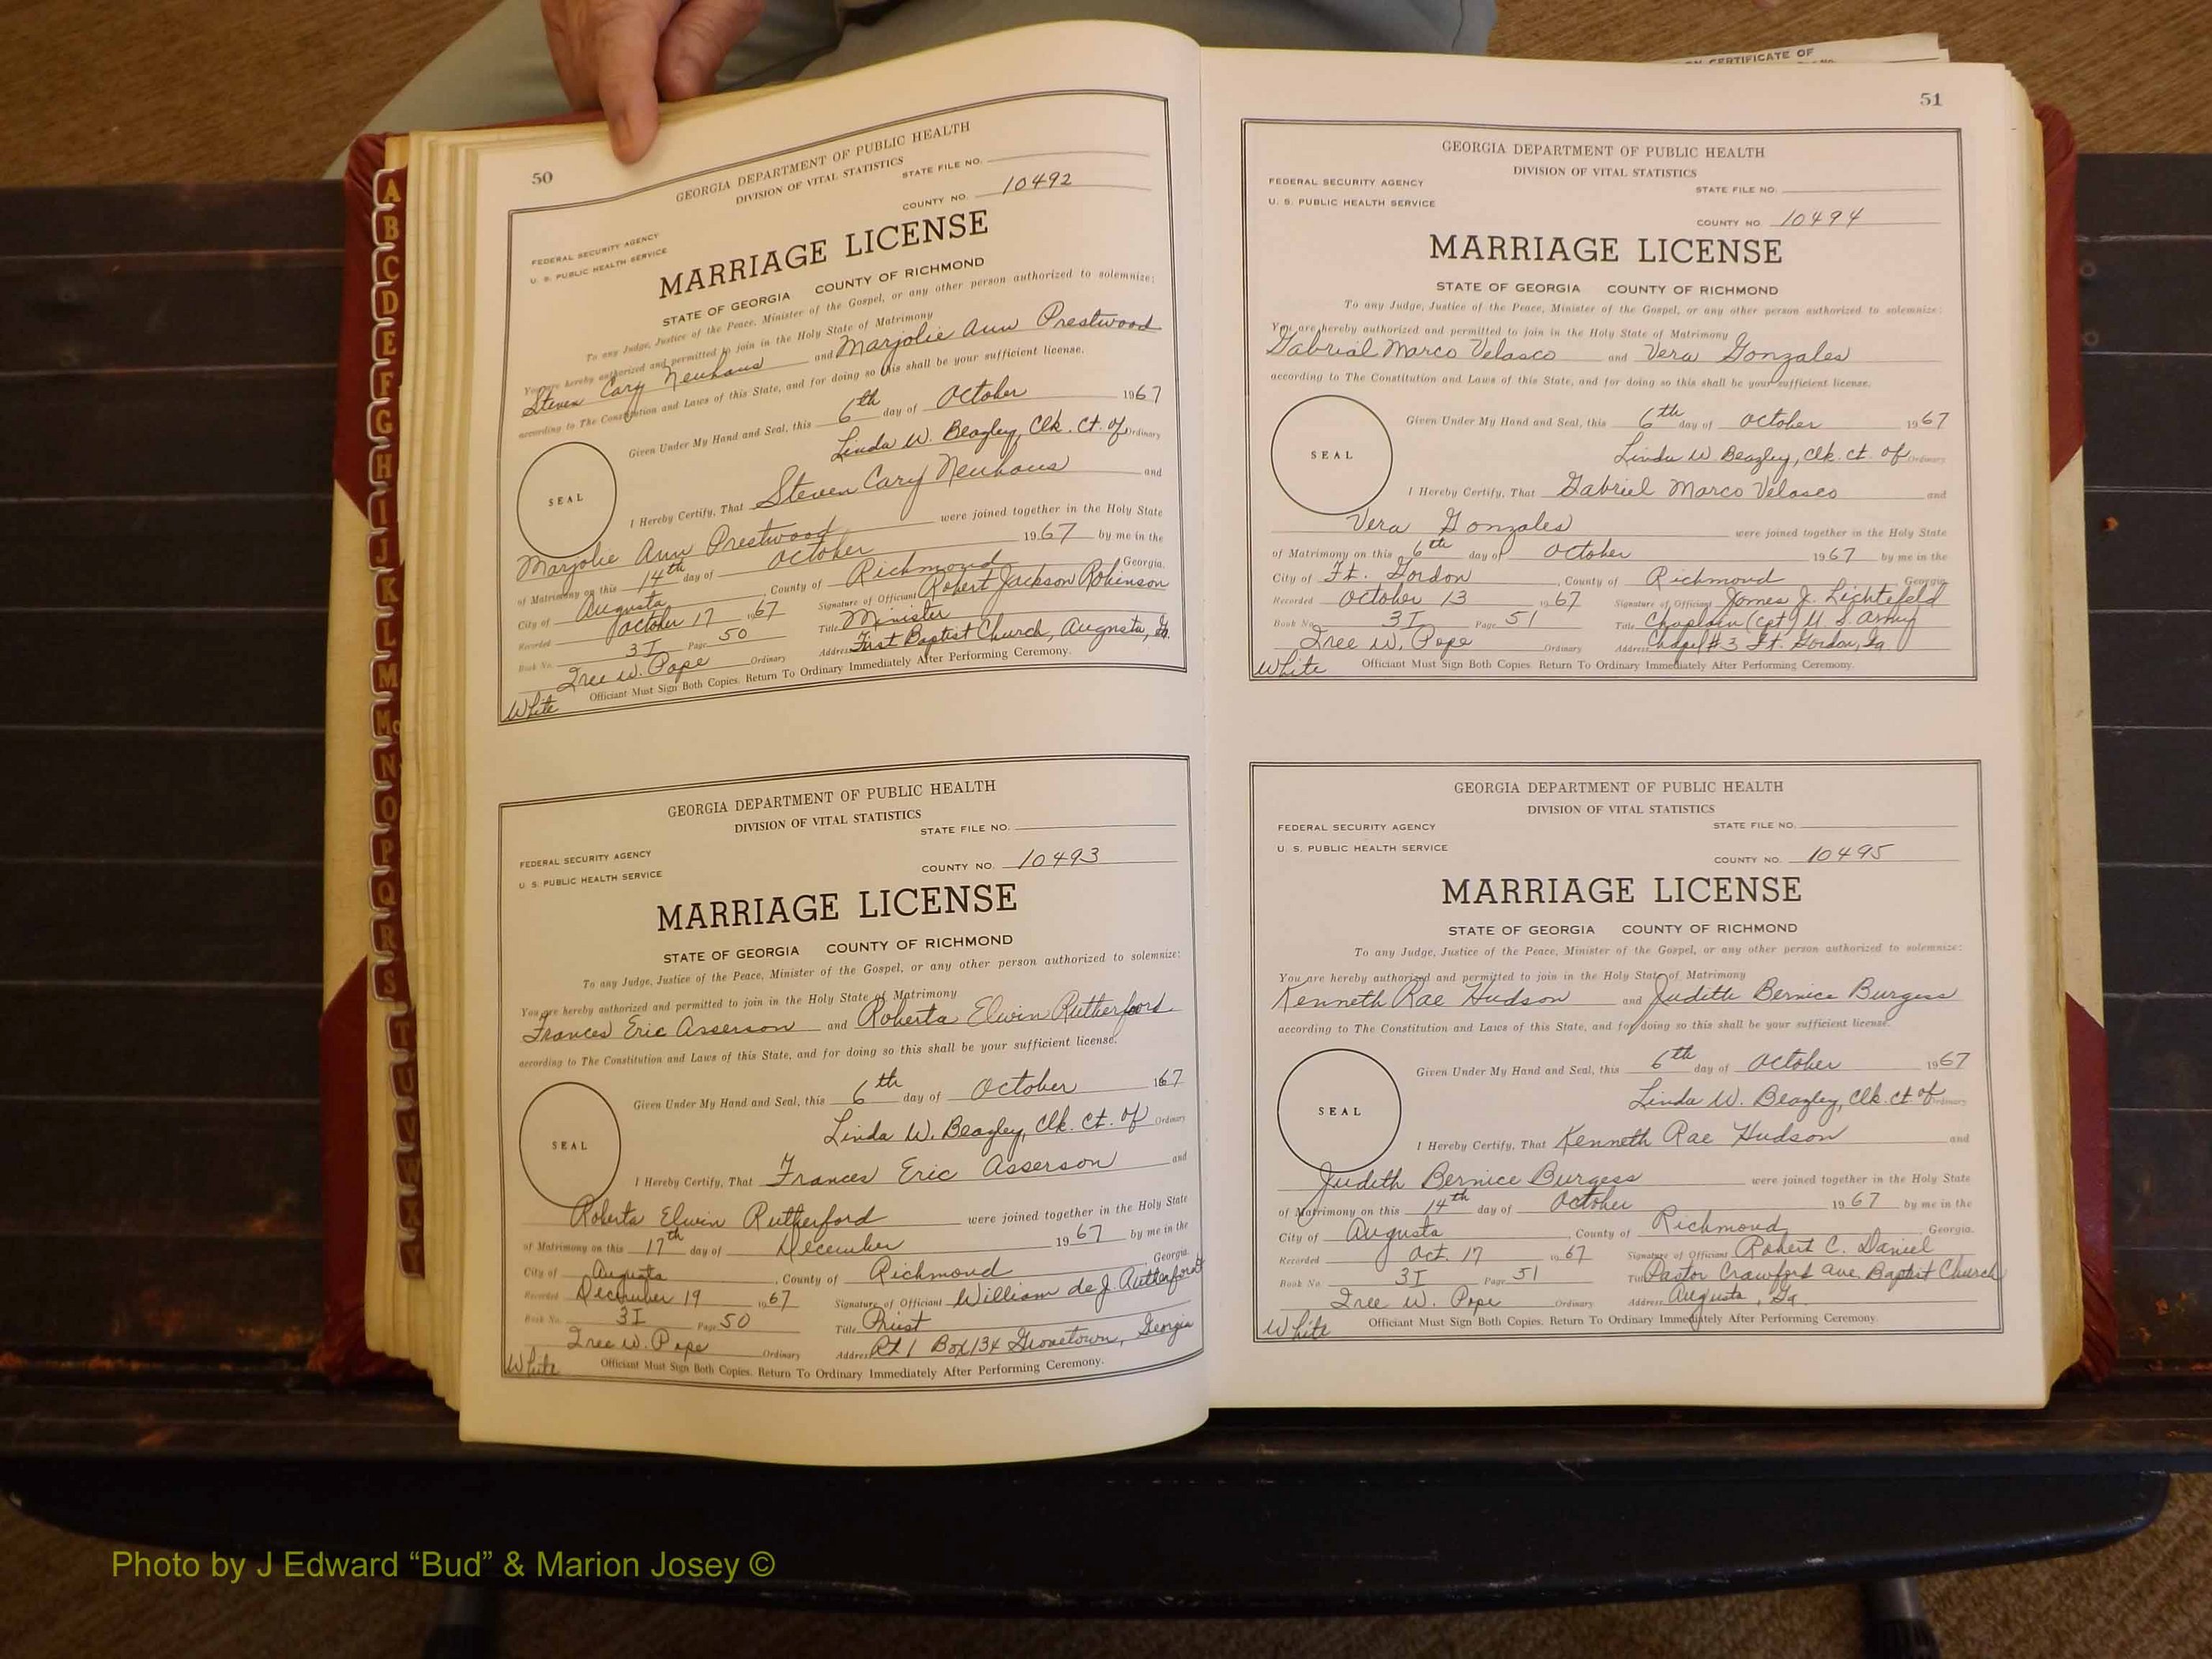 50
GEORGIA DEPARTMENT OF PUBLIC HEALTH
DIVISION OF VITAL STATISTICS
STATE FILE NO.
COUNTY NO. 10492
FEDERAL SECURITY AGENCY
U. S. PUBLIC HEALTH SERVICE
MARRIAGE LICENSE
STATE OF GEORGIA COUNTY OF RICHMOND
To any Judge, Justice of the Peace, Minister of the Gospel, or any other person authorized to solemnize:
You are hereby authorized and permitted to join in the Holy State of Matrimony
Steven Cary Neuhaus and Marjolie Ann Prestwood
according to The Constitution and Laws of this State, and for doing so this shall be your sufficient license.
Given Under My Hand and Seal, this 6th day of October 1967
Linda W. Beazley, Clk. Ct. of Ordinary
SEAL
I Hereby Certify, That Steven Cary Neuhaus and
Marjolie Ann Prestwood were joined together in the Holy State
of Matrimony on this 14th day of October 1967 by me in the
City of Augusta, County of Richmond Georgia.
Recorded October 17 1967 Signature of Officiant Robert Jackson Robinson
Book No. 3I Page 50 Title Minister
Iree W. Pope Ordinary Address First Baptist Church, Augusta, Ga.
White Officiant Must Sign Both Copies. Return To Ordinary Immediately After Performing Ceremony.
GEORGIA DEPARTMENT OF PUBLIC HEALTH
DIVISION OF VITAL STATISTICS
STATE FILE NO.
FEDERAL SECURITY AGENCY
COUNTY NO. 10493
U. S. PUBLIC HEALTH SERVICE
MARRIAGE LICENSE
STATE OF GEORGIA COUNTY OF RICHMOND
To any Judge, Justice of the Peace, Minister of the Gospel, or any other person authorized to solemnize:
You are hereby authorized and permitted to join in the Holy State of Matrimony
Frances Eric Asserson and Roberta Elwin Rutherford
according to The Constitution and Laws of this State, and for doing so this shall be your sufficient license.
Given Under My Hand and Seal, this 6th day of October 167
Linda W. Beazley, Clk. Ct. of Ordinary
SEAL
I Hereby Certify, That Frances Eric Asserson and
Roberta Elwin Rutherford were joined together in the Holy State
of Matrimony on this 17th day of December 1967 by me in the
City of Augusta, County of Richmond, Georgia.
Recorded December 19 1967 Signature of Officiant William de J. Rutherford
Book No. 3I Page 50 Title Priest
Iree W. Pope Ordinary Address Rt 1 Box 134 Grovetown, Georgia
White Officiant Must Sign Both Copies. Return To Ordinary Immediately After Performing Ceremony.
CERTIFICATE OF
51
GEORGIA DEPARTMENT OF PUBLIC HEALTH
DIVISION OF VITAL STATISTICS
FEDERAL SECURITY AGENCY
STATE FILE NO.
U. S. PUBLIC HEALTH SERVICE
COUNTY NO 10494
MARRIAGE LICENSE
STATE OF GEORGIA COUNTY OF RICHMOND
To any Judge, Justice of the Peace, Minister of the Gospel, or any other person authorized to solemnize:
You are hereby authorized and permitted to join in the Holy State of Matrimony
Gabrial Marco Velasco and Vera Gonzales
according to The Constitution and Laws of this State, and for doing so this shall be your sufficient license.
Given Under My Hand and Seal, this 6th day of October 1967
Linda W. Beazley, Clk. Ct. of Ordinary
SEAL
I Hereby Certify, That Gabriel Marco Velasco and
Vera Gonzales were joined together in the Holy State
of Matrimony on this 6th day of October 1967 by me in the
City of Ft. Gordon, County of Richmond Georgia
Recorded October 13 1967 Signature of Officiant James J. Lichtefeld
Book No. 3I Page 51 Title Chaplain (cpt) U. S. Army
Iree W. Pope Ordinary Address Chapel #3 Ft. Gordon, Ga
White Officiant Must Sign Both Copies. Return To Ordinary Immediately After Performing Ceremony.
GEORGIA DEPARTMENT OF PUBLIC HEALTH
DIVISION OF VITAL STATISTICS
FEDERAL SECURITY AGENCY
STATE FILE NO.
U. S. PUBLIC HEALTH SERVICE
COUNTY NO. 10495
MARRIAGE LICENSE
STATE OF GEORGIA COUNTY OF RICHMOND
To any Judge, Justice of the Peace, Minister of the Gospel, or any other person authorized to solemnize:
You are hereby authorized and permitted to join in the Holy State of Matrimony
Kenneth Rae Hudson and Judith Bernice Burgess
according to The Constitution and Laws of this State, and for doing so this shall be your sufficient license.
Given Under My Hand and Seal, this 6th day of October 1967
Linda W. Beazley, Clk. Ct. of Ordinary
SEAL
I Hereby Certify, That Kenneth Rae Hudson and
Judith Bernice Burgess were joined together in the Holy State
of Matrimony on this 14th day of October 1967 by me in the
City of Augusta, County of Richmond, Georgia.
Recorded Oct. 17 1967 Signature of Officiant Robert C. Daniel
Book No. 3I Page 51 Title Pastor Crawford Ave. Baptist Church
Iree W. Pope Ordinary Address Augusta, Ga.
White Officiant Must Sign Both Copies. Return To Ordinary Immediately After Performing Ceremony.
A
B
C
D
E
F
G
H
I
J
K
L
M
Mc
N
O
P
Q
R
S
T
U
V
W
X
Y
Photo by J Edward “Bud” & Marion Josey ©